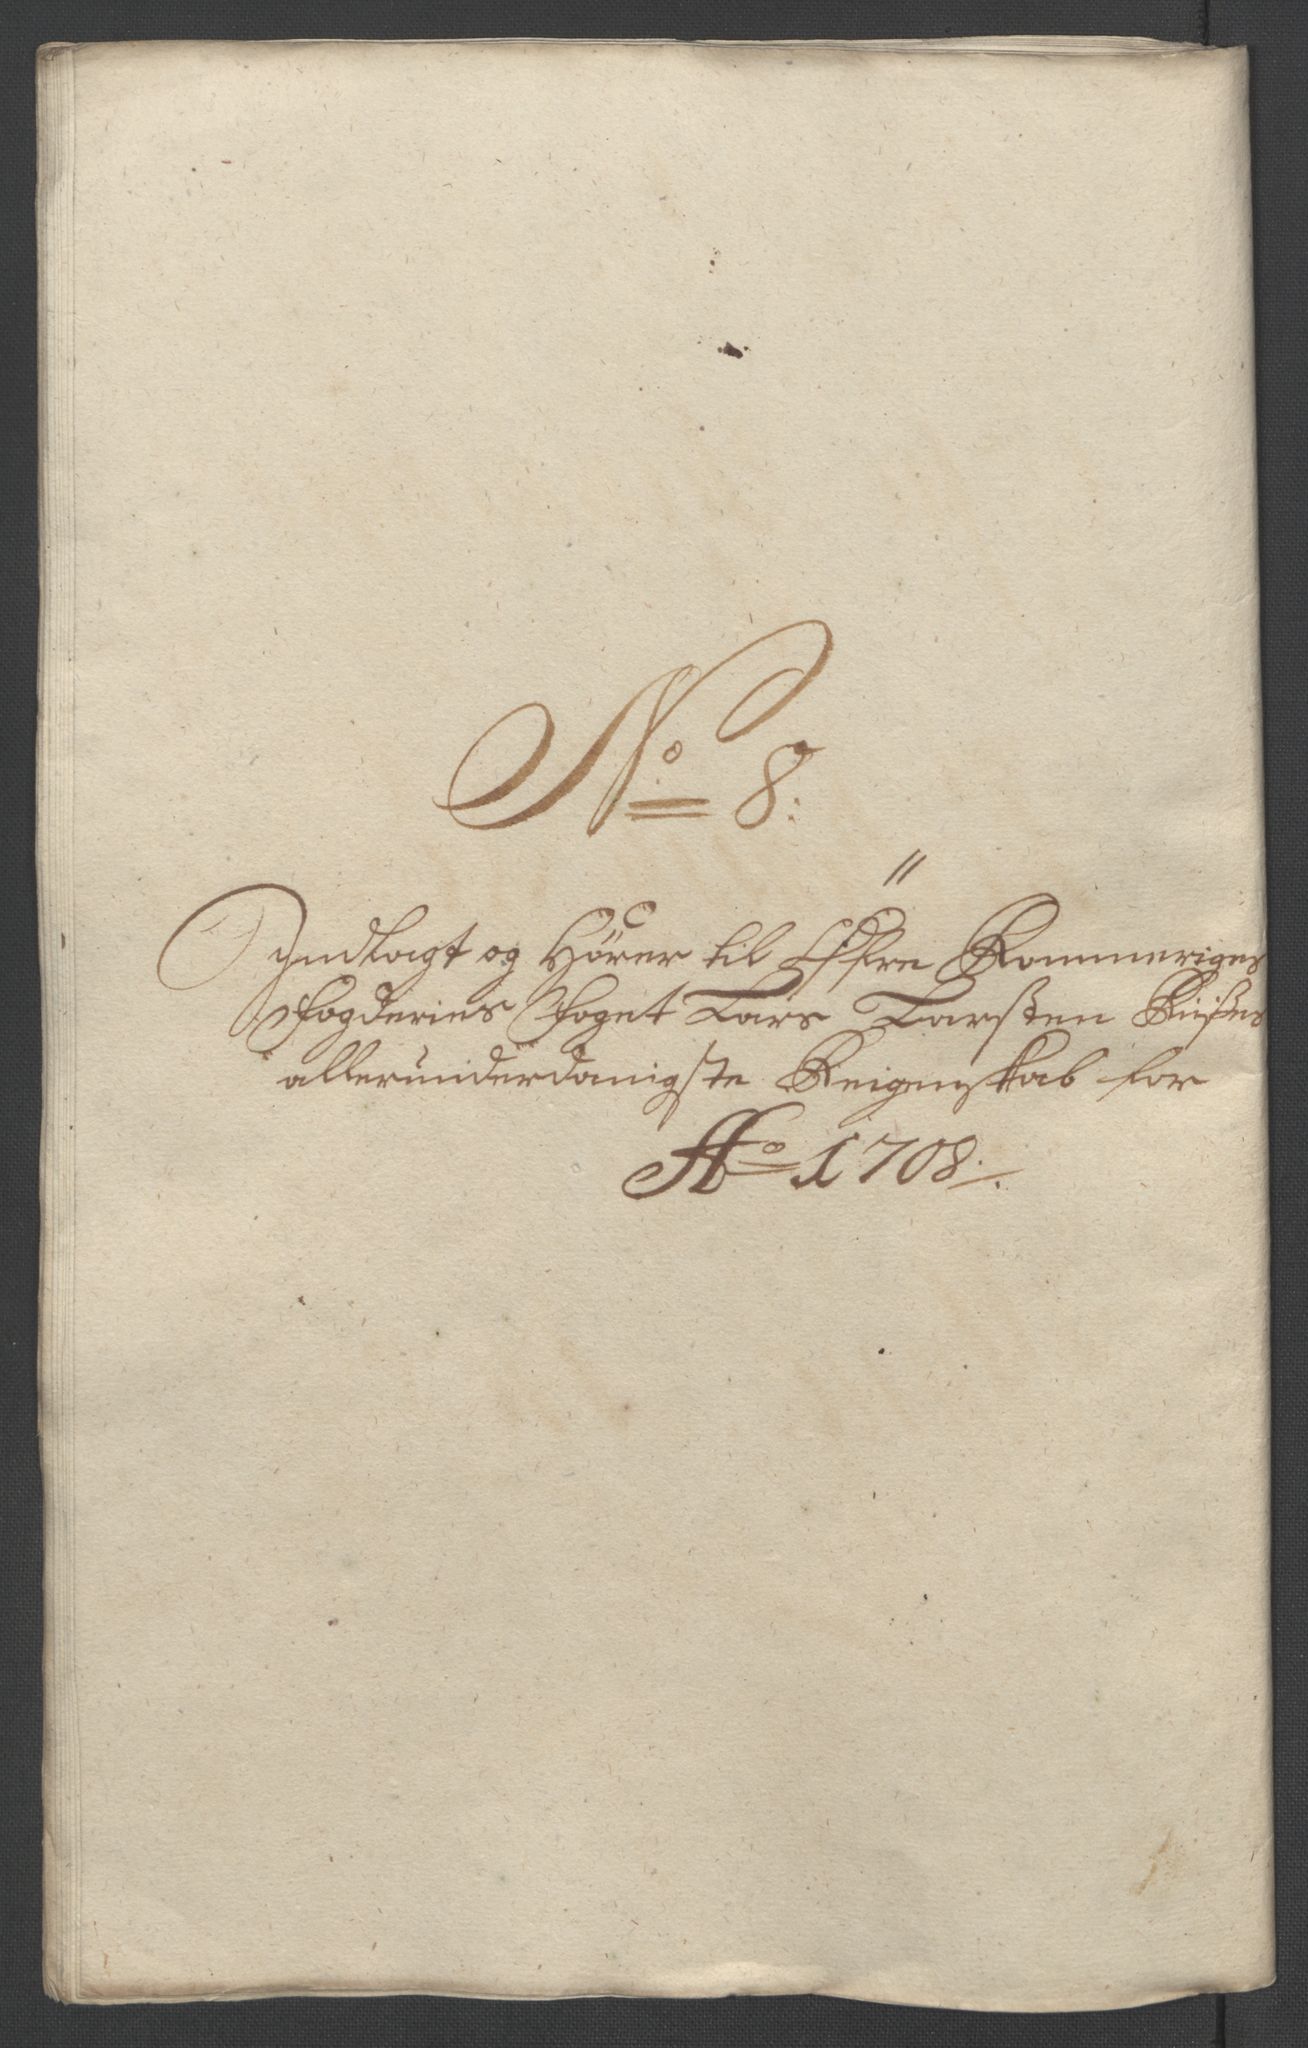 No 8:
Indlagt og Hörer til Öfre Rommeriges
Fogderies Foget Lars Larsten
allerunderdanigste Reigenskab for
Ao 1708.